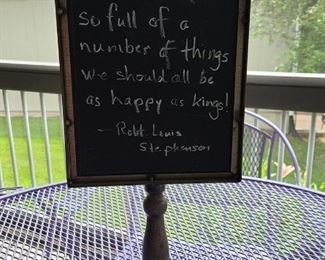 so full of a
number of things
we should all be
as happy as kings!
- Robt. Louis
Stephenson